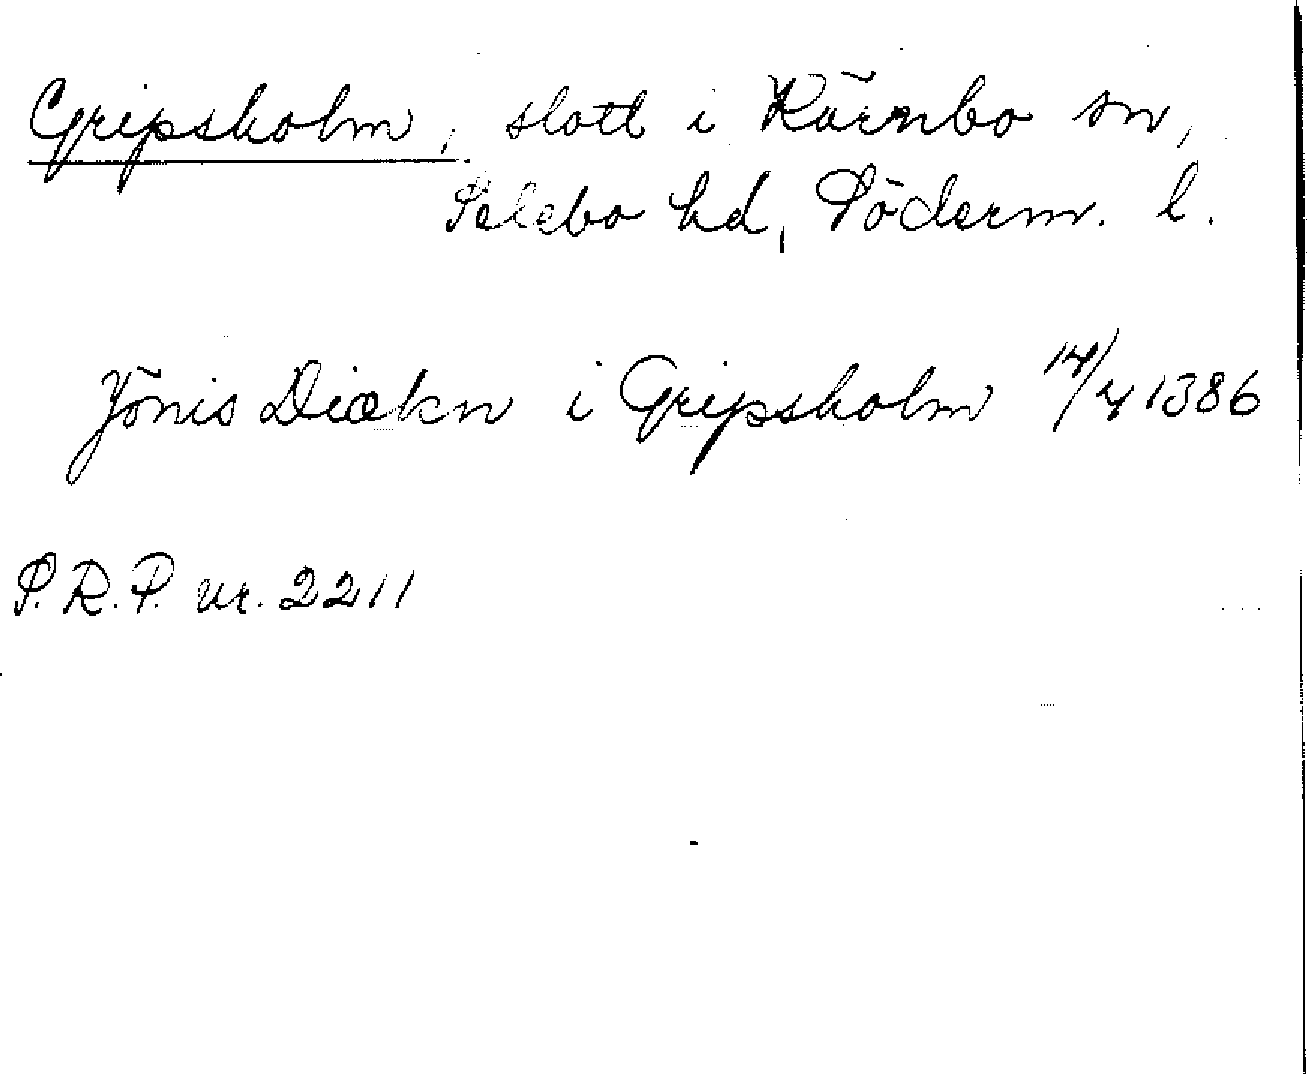 Gripsholm, slott i Kärnbo sn,
Selebo hd, Söderm. l.
Jönis Diækn i Gripsholm 14/4 1386
S.R.P. nr. 2211